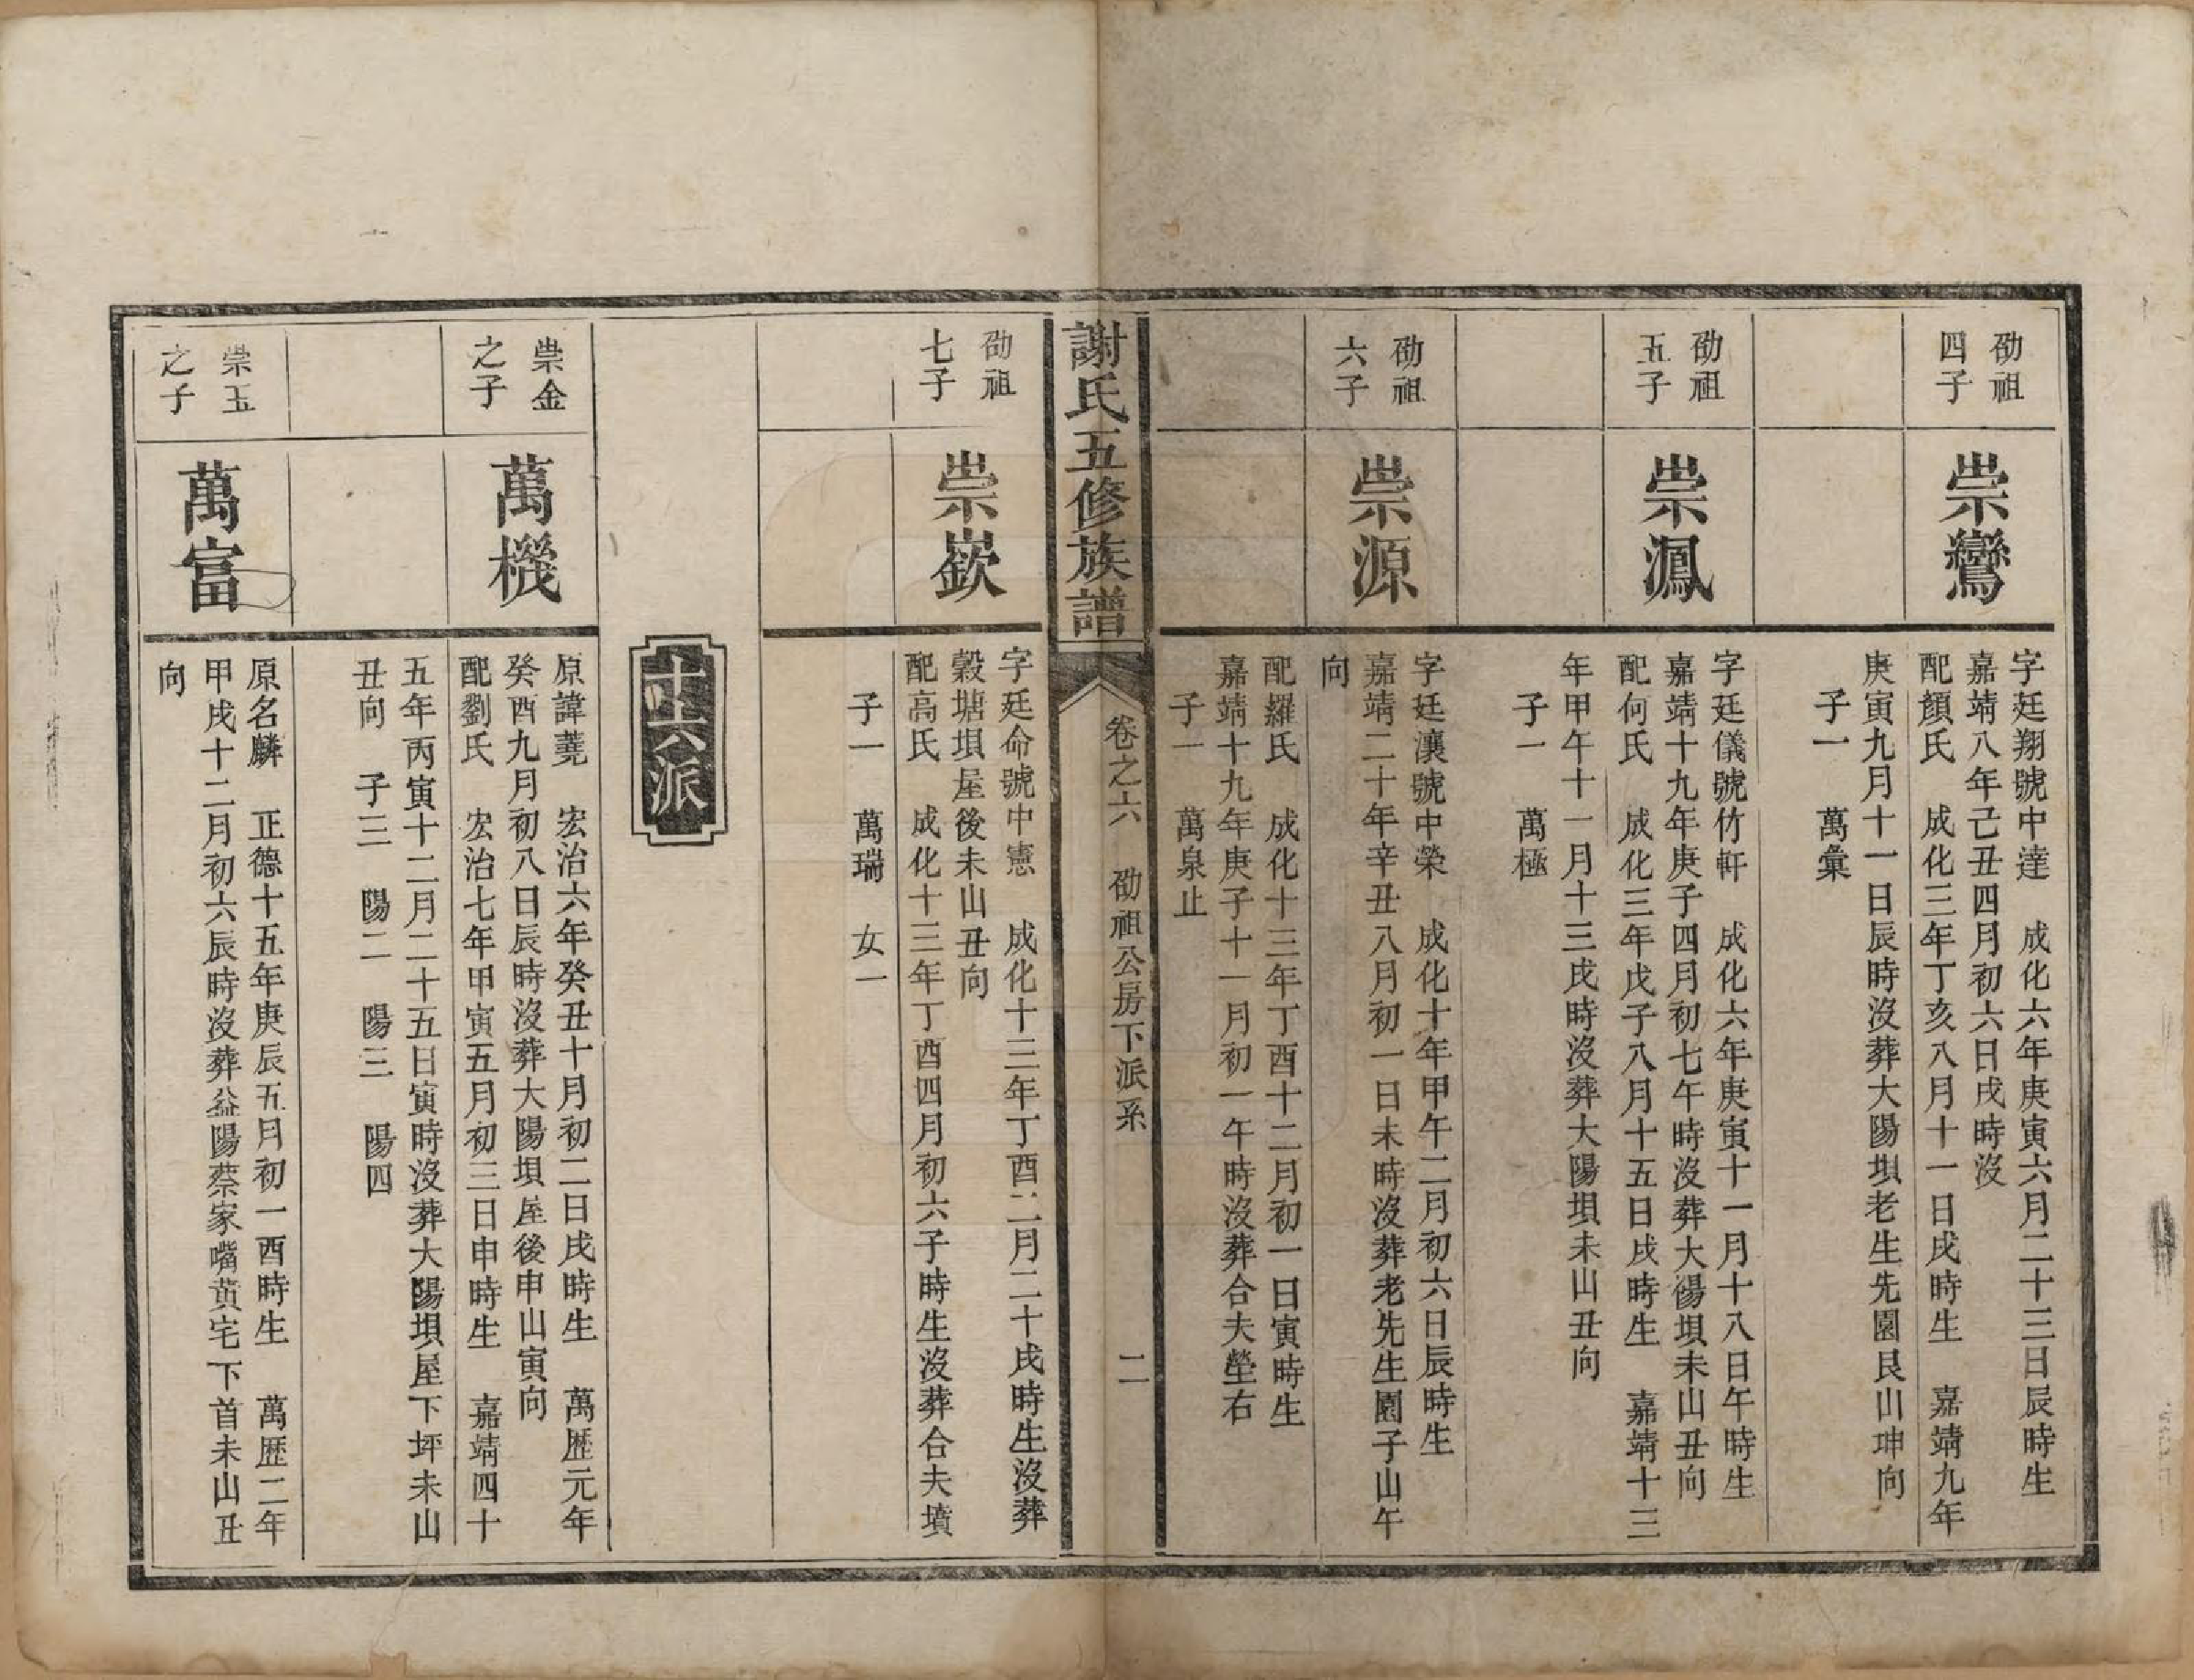 劭祖
四子
崇鸞
字廷翔號中達　成化六年庚寅六月二十三日辰時生
嘉靖八年己丑四月初六日戌時沒
配顏氏　成化三年丁亥八月十一日戌時生　嘉靖九年
庚寅九月十一日辰時沒葬大陽垻老生先園艮山坤向
子一　萬彙
劭祖
五子
崇鳳
字廷儀號竹軒　成化六年庚寅十一月十八日午時生
嘉靖十九年庚子四月初七午時沒葬大陽垻未山丑向
配何氏　成化三年戊子八月十五日戌時生　嘉靖十三
年甲午十一月十三戌時沒葬大陽垻未山丑向
子一　萬極
劭祖
六子
崇源
字廷瀼號中榮　成化十年甲午二月初六日辰時生
嘉靖二十年辛丑八月初一日未時沒葬老先生園子山午
向
配羅氏　成化十三年丁酉十二月初一日寅時生
嘉靖十九年庚子十一月初一午時沒葬合夫塋右
子一　萬泉止
謝氏五修族譜
卷之六　劭祖公房下派系
二
劭祖
七子
崇嶔
字廷命號中憲　成化十三年丁酉二月二十戌時生沒葬
穀塘垻屋後未山丑向
配高氏　成化十三年丁酉四月初六子時生沒葬合夫墳
子一　萬瑞　女一
十六派
崇金
之子
萬機
原諱蕘　宏治六年癸丑十月初二日戌時生　萬歷元年
癸酉九月初八日辰時沒葬大陽垻屋後申山寅向
配劉氏　宏治七年甲寅五月初三日申時生　嘉靖四十
五年丙寅十二月二十五日寅時沒葬大陽垻屋下坪未山
丑向　子三　陽二　陽三　陽四
崇玉
之子
萬富
原名麟　正德十五年庚辰五月初一酉時生　萬歷二年
甲戌十二月初六辰時沒葬益陽蔡家嘴黃宅下首未山丑
向